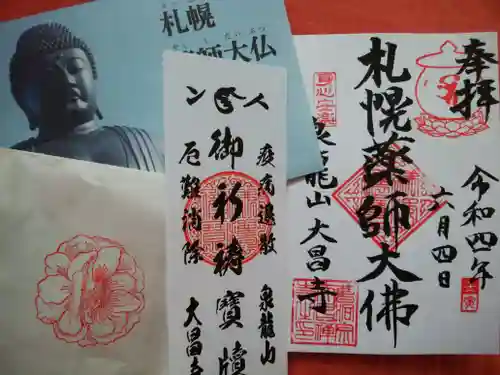 札幌
薬師大仏
奉拝
札幌薬師大佛
泉龍山 大昌寺
令和四年
六月四日
疫病退散
御祈祷寶牘
厄難消除
泉龍山
大昌寺